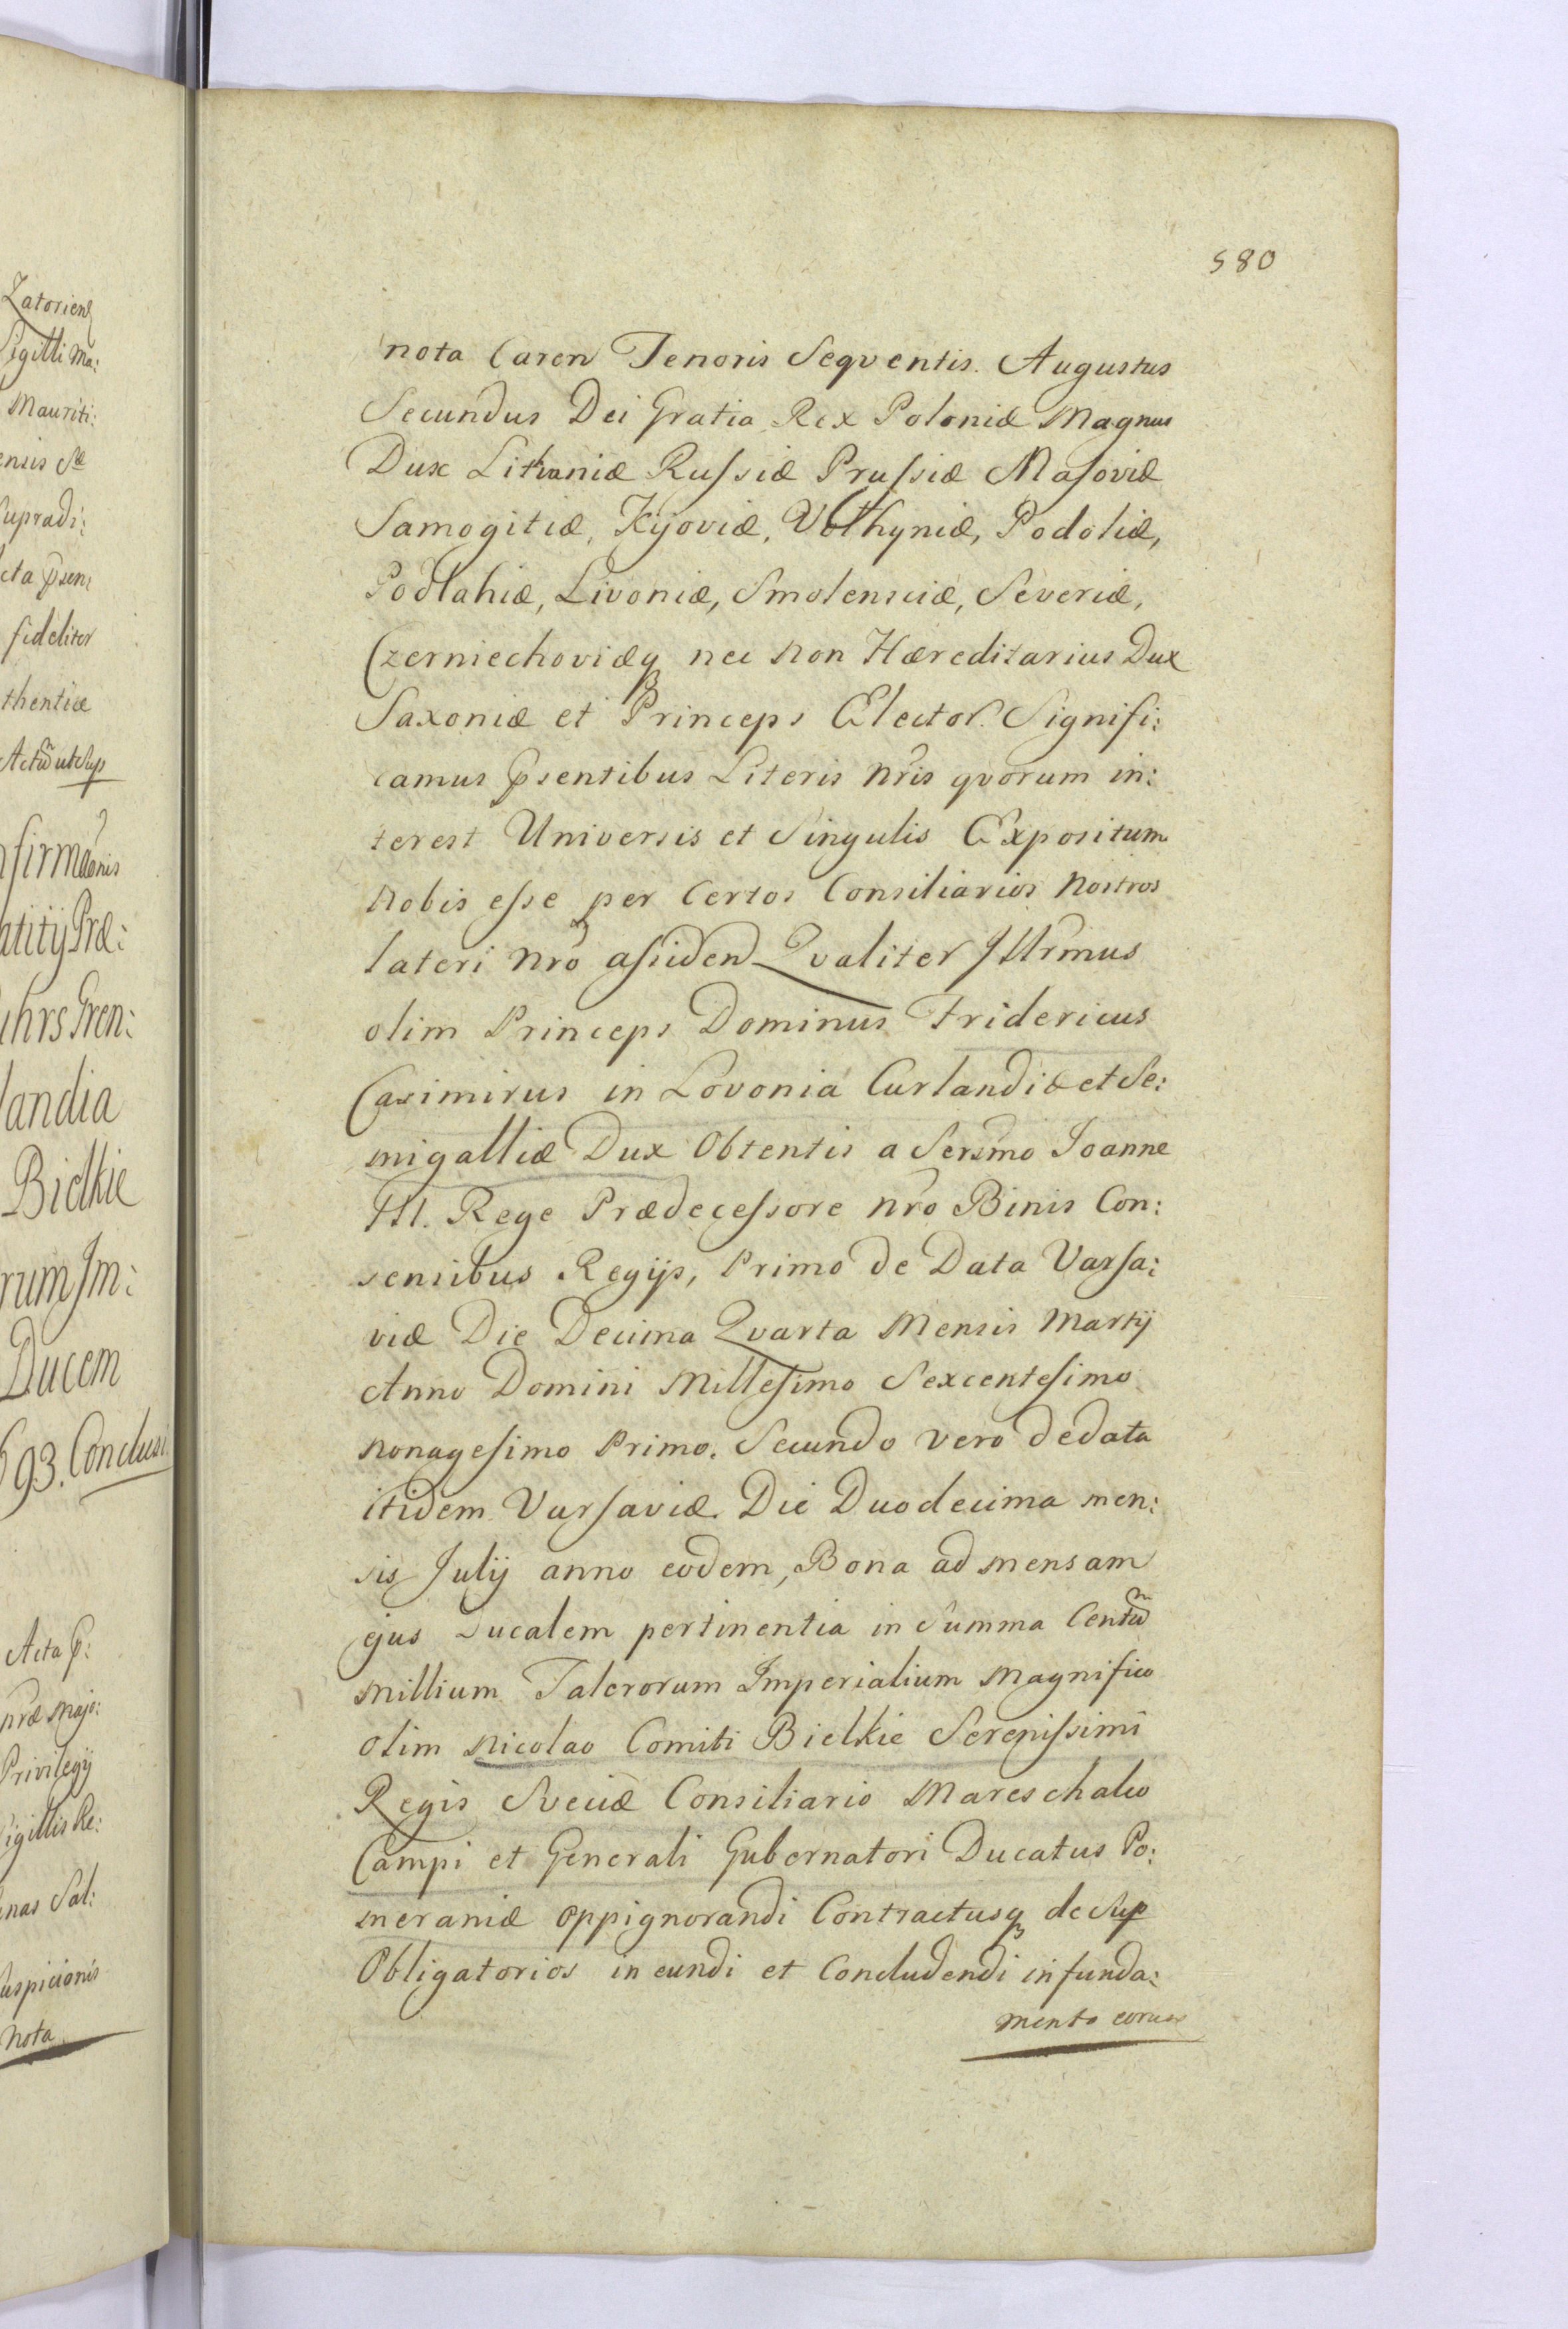 580
nota Caren Tenoris Seqventis. Augustus
Secundus Dei Gratia Rex Poloniæ Magnus
Dux Lithvaniæ Russiæ Prussiæ Masoviæ
Samogitiæ, Kijoviæ, Volhyniæ, Podoliæ,
Podlahiæ, Livoniæ, Smolensciæ, Severiæ,
Czerniechoviæq nec non Hæreditarius Dux
Saxoniæ et Princeps Elector. Signifi:
camus psentibus Literis nris qvorum in:
terest Universis et Singulis Expositum
nobis esse per Certos Consiliarios Nostros
lateri nro assiden Qvaliter Illrmus
olim Princeps Dominus Fridericus
Casimirus in Lovonia Curlandiæ et Se:
migalliæ Dux Obtentis a Sermo Joanne
III. Rege Prædecessore nro Binis Con:
sensibus Regijs, Primo de Data Varsa:
viæ Die Decima Qvarta Mensis Martij
Anno Domini Millesimo Sexcentesimo
nonagesimo Primo. Secundo vero de data
itidem Varsaviæ Die Duodecima men:
sis Julij anno eodem, Bona ad mensam
ejus Ducalem pertinentia in Summa Centu
Millium Talerorum Imperialium Magnifico
olim Nicolao Comiti Bielkie Serenissimi
Regis Sveciæ Consiliario Mareschalco
Campi et Generali Gubernatori Ducatus Po:
meraniæ oppignorandi Contractusq de sup
Obligatorios in eundi et Concludendi in funda:
mento eorum
Zatorien
Sigilli Ma:
Mauriti:
ensis
Supradi:
cta psen
fideliter
thenticæ
Actu ut Sup
nfirmaonis
Præ:
landia
Bielkie
rum Im:
Ducem
693. Conclusi
Acta p:
nræ Majo:
Privilegij
Sigillis Re:
Sal:
uspicionis
nota